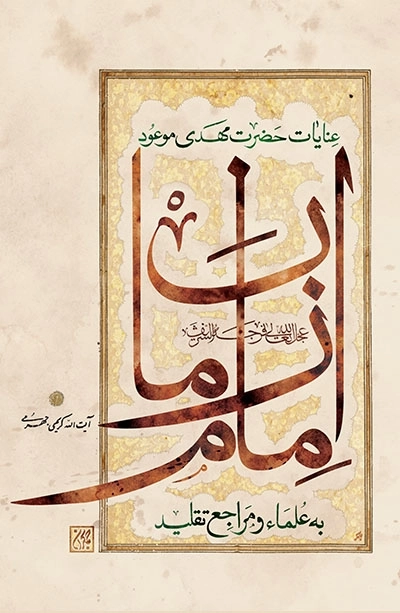 عنایات حضرت مهدی موعود
امام
زمان
عجل الله تعالی فرجه الشریف
به علماء و مراجع تقلید
آیت الله کریمی جهرمی